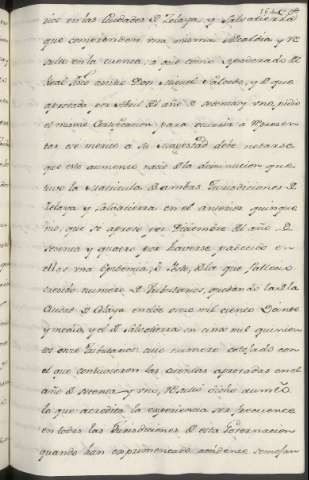 en las Ciudades D. Zelaya, y Salvatierra
que comprehenden una misma Alcaldia, y re
sulta en la cuenta, a que como Apoderado D.
Real Fisco asistio Don Miguel Salcedo, y D. que
aprovada por Abril del año D. setenta y uno, pidio
el mismo Certificacion para ocurrir a
su Magestad debe notarse
que este aumento nacio de la diminucion que
tuvo la Matricula D. ambas Jurisdiciones D.
Zelaya y Salvatierra en el anterior quinque
nio, que se aprovó por Diciembre del año D.
sesenta y quatro por haverse padecido en
ellas una Epidemia, D. la que fallecio
crecido numero D. Tributarios, quedando la D. la
Ciudad D. Celaya en once mil ciento
y medio, y el D. Salvatierra en un mil quinien
tos once tributarios cuio numero cotejado con
el que contuvieron las cuentas aprovadas en el
año D. setenta y uno, resultó dicho aumto.
lo que acredita la experiencia ser frecuente
en todas las Jurisdiciones D. esta Governacion
quando han experimentado accidente semejan